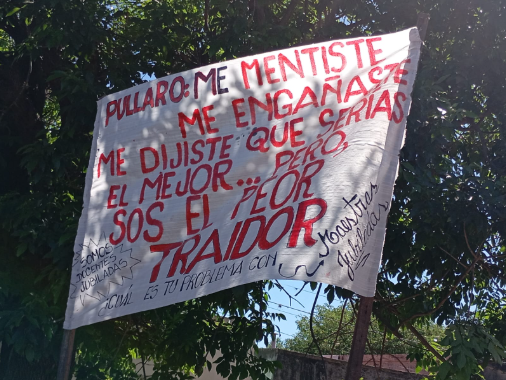 PULLARO: ME MENTISTE
ME ENGAÑASTE
"ME DIJISTE" QUE SERIAS
EL MEJOR... PERO,
SOS EL PEOR
TRAIDOR
DOCENTES
JUBILADAS
¿CUÁL ES TU PROBLEMA CON
Maestras
Jubiladas?